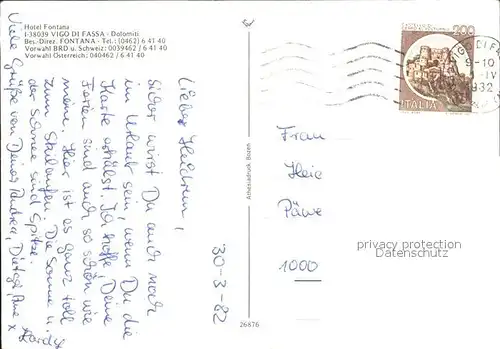 Hotel Fontana
I-38039 VIGO DI FASSA - Dolomiti
Bes.-Direz. FONTANA - Tel.: (0462) 6 41 40
Vorwahl BRD u. Schweiz: 0039462 / 6 41 40
Vorwahl Österreich: 040462 / 6 41 40
30-3-82
Liebe Heidrun,
sicher wirst Du auch noch
im Urlaub sein, wenn Du die
Karte erhälst. Ich hoffe, Deine
Ferien sind auch so schön wie
meine. Hier ist es ganz toll
zum Skilaufen. Die Sonne u.
der Schnee sind Spitze.
Viele Grüße von Deiner Andrea,
Athesiadruck, Bozen
26876
200
ITALIA
VIGO DI FA
9-10
-IV
Frau
Heie
Päwe
1000
privacy protection
Datenschutz